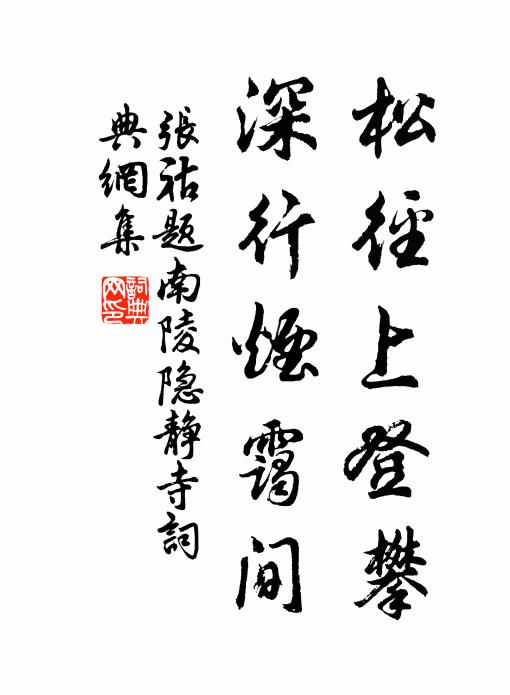 松徑上登攀
深行煙靄間
張祜題南陵隐静寺詞
典網集
詞典
网印